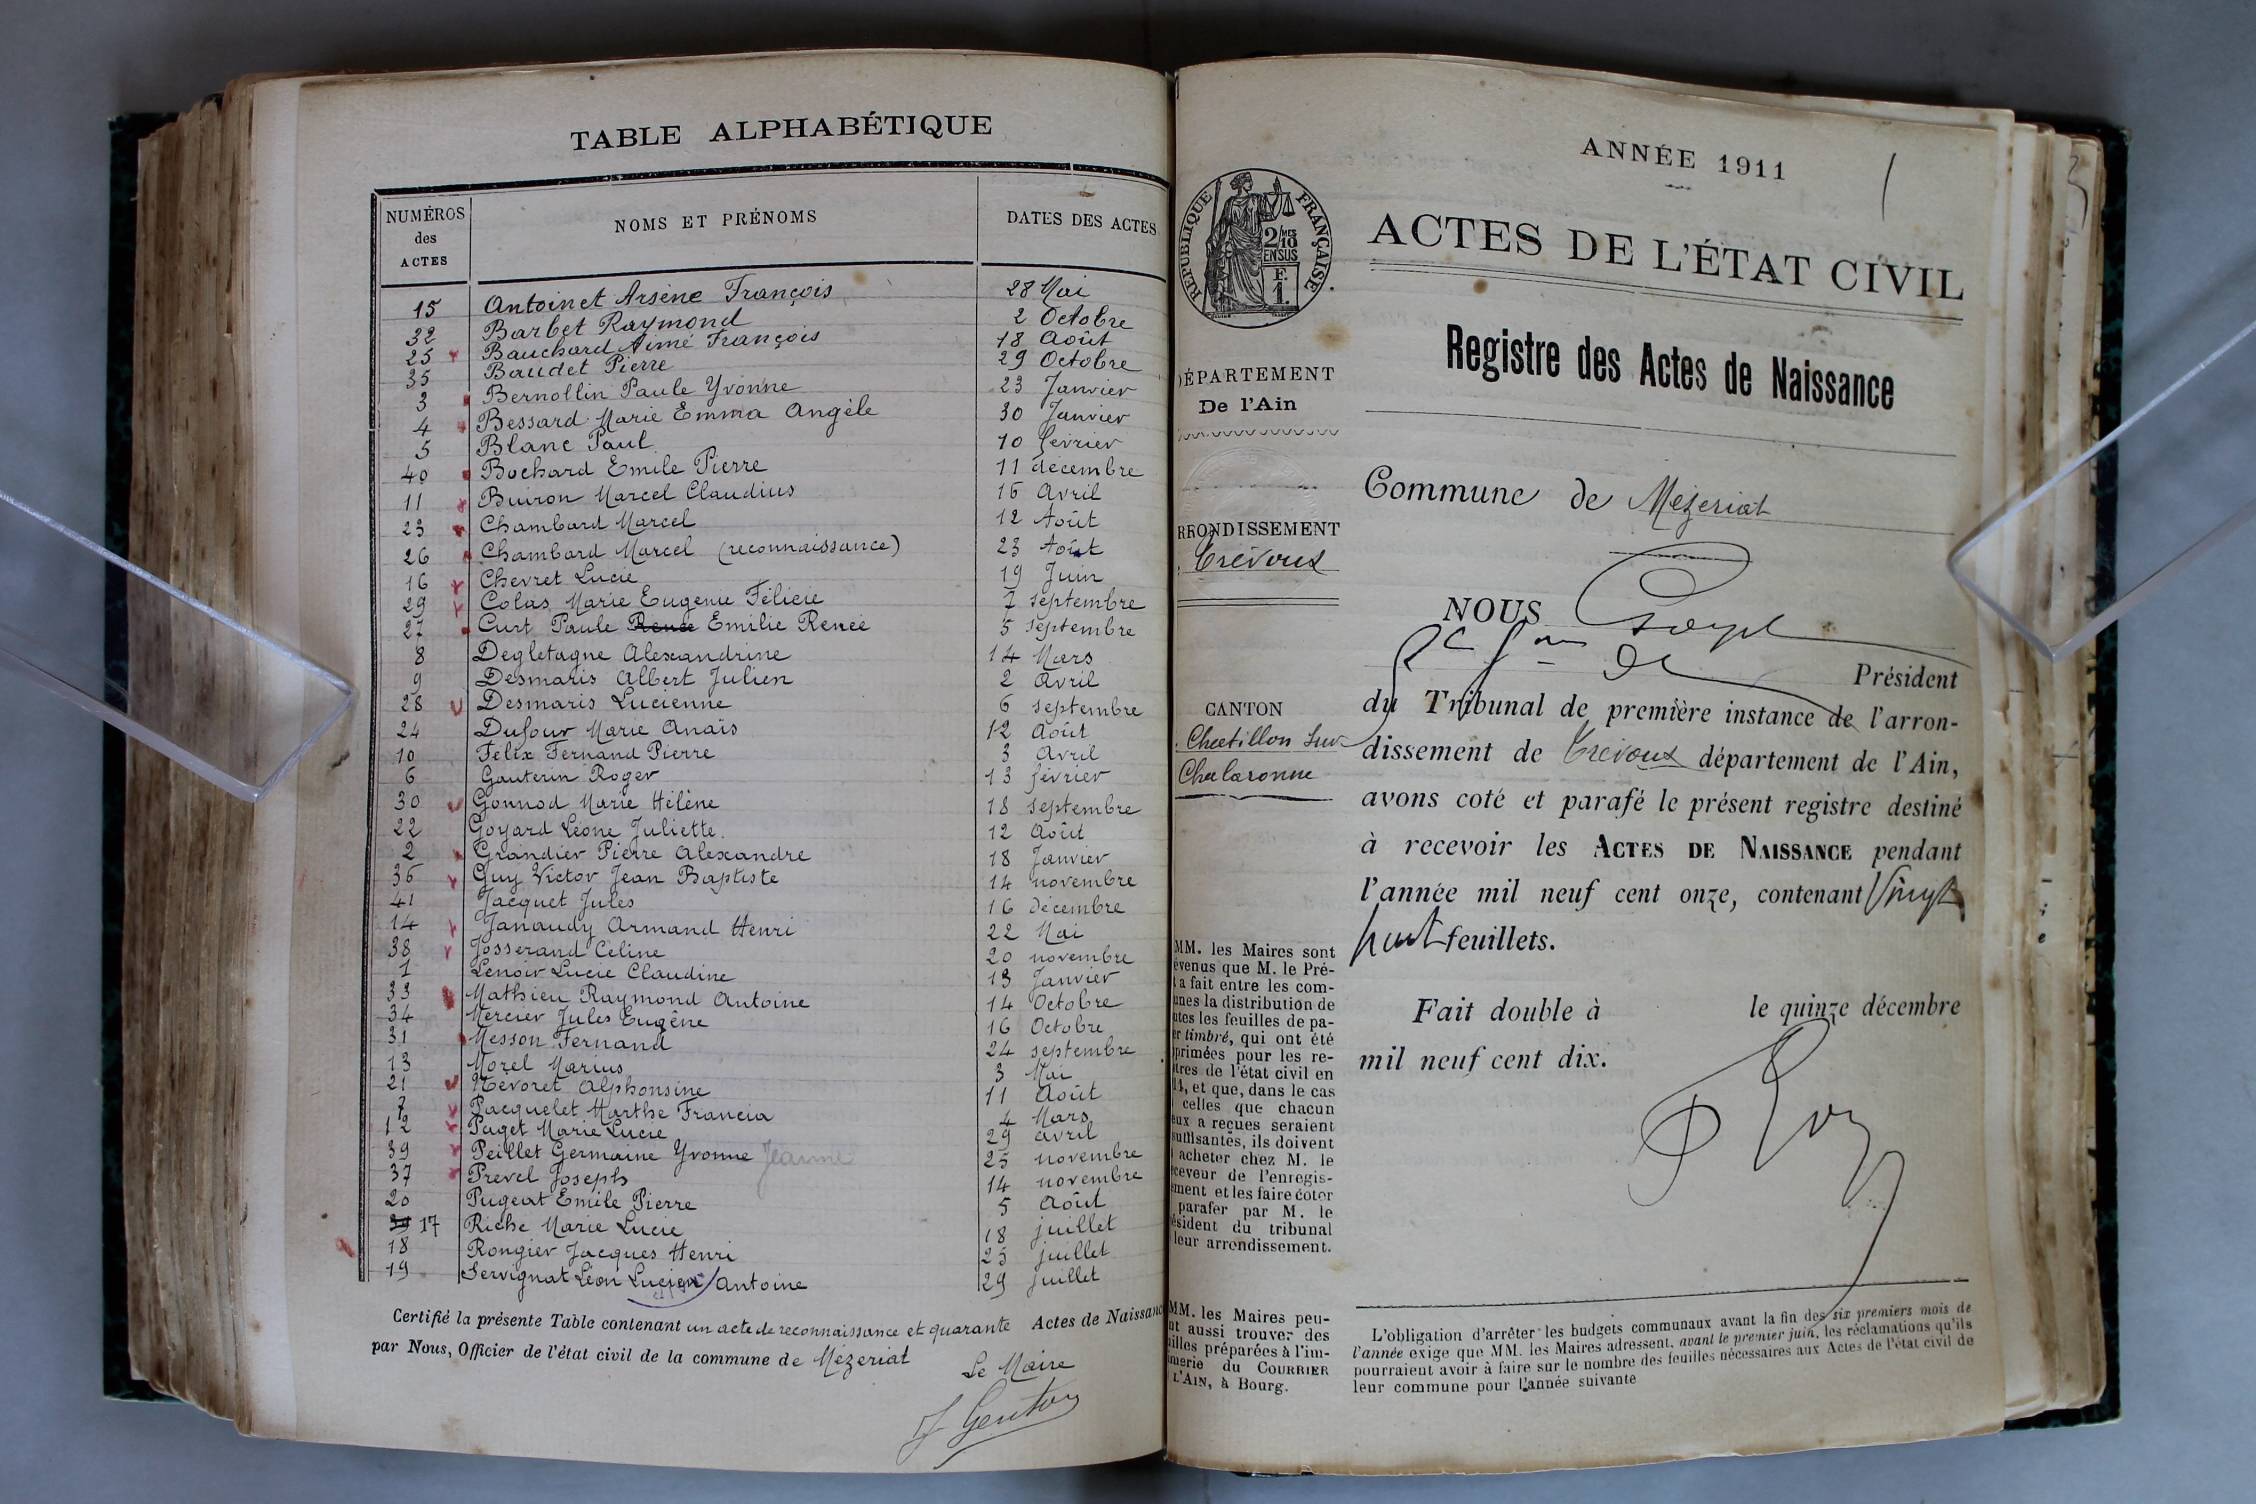 TABLE ALPHABÉTIQUE
NUMÉROS des ACTES NOMS ET PRÉNOMS DATES DES ACTES
15 Antoinet Arsène François 28 Mai
32 Barbet Raymond 2 Octobre
25 Bauchard Aimé François 18 Août
35 Baudet Pierre 29 Octobre
3 Bernollin Paule Yvonne 23 Janvier
4 Bessard Marie Emma Angèle 30 Janvier
5 Blanc Paul 10 février
40 Bochard Emile Pierre 11 décembre
11 Buiron Marcel Claudius 16 Avril
23 Chambard Marcel 12 Août
26 Chambard Marcel (reconnaissance) 23 Août
16 Chevret Lucie 19 Juin
29 Colas Marie Eugenie Félicie 7 septembre
27 Curt Paule Renée Emilie Renée 5 septembre
8 Degletagne Alexandrine 14 Mars
9 Desmaris Albert Julien 2 Avril
28 Desmaris Lucienne 6 septembre
24 Dufour Marie Anaïs 12 Août
10 Félix Fernand Pierre 3 Avril
6 Gauterin Roger 13 février
30 Gonnod Marie Hélène 18 septembre
22 Goyard Léone Juliette. 12 Août
2 Grandier Pierre Alexandre 18 Janvier
36 Guy Victor Jean Baptiste 14 novembre
41 Jacquet Jules 16 décembre
14 Janaudy Armand Henri 22 Mai
38 Josserand Céline 20 novembre
1 Lenoir Lucie Claudine 13 Janvier
33 Mathieu Raymond Antoine 14 Octobre
34 Mercier Jules Eugêne 16 Octobre
31 Messon Fernand 24 septembre
13 Morel Marius 3 Mai
21 Névoret Alphonsine 11 Août
7 Pacquelet Marthe Francia 4 Mars
12 Paget Marie Lucie 29 avril
39 Peillet Germaine Yvonne Jeanne 25 novembre
37 Prevel Joseph 14 novembre
20 Pugeat Emile Pierre 5 Août
17 Riche Marie Lucie 18 juillet
18 Rongier Jacques Henri 25 juillet
19 Servignat Léon Lucien Antoine 29 juillet
Certifié la présente Table contenant un acte de reconnaissance et quarante Actes de Naissanc
par Nous, Officier de l'état civil de la commune de Mézeriat
Le Maire
ANNÉE 1911
1
RÉPUBLIQUE FRANÇAISE
2/10 MES
EN SUS
F.
1.
ACTES DE L'ÉTAT CIVIL
Registre des Actes de Naissance
ÉPARTEMENT
De l'Ain
RRONDISSEMENT
Trévoux
CANTON
Chatillon sur
Chalaronne
Commune de Mézeriat
NOUS
Président
du Tribunal de première instance de l'arron-
dissement de Trévoux département de l'Ain,
avons coté et parafé le présent registre destiné
à recevoir les ACTES DE NAISSANCE pendant
l'année mil neuf cent onze, contenant Vingt
huit feuillets.
Fait double à le quinze décembre
mil neuf cent dix.
MM. les Maires sont
évenus que M. le Pré-
t a fait entre les com-
unes la distribution de
utes les feuilles de pa-
er timbré, qui ont été
primées pour les re-
tres de l'état civil en
11, et que, dans le cas
celles que chacun
eux a reçues seraient
suffisantes, ils doivent
acheter chez M. le
ceveur de l'enregis-
ment et les faire coter
parafer par M. le
ésident du tribunal
leur arrondissement.
MM. les Maires peu-
nt aussi trouver des
uilles préparées à l'im-
merie du COURRIER
L'AIN, à Bourg.
L'obligation d'arrêter les budgets communaux avant la fin des six premiers mois de
l'année exige que MM. les Maires adressent, avant le premier juin, les réclamations qu'ils
pourraient avoir à faire sur le nombre des feuilles nécessaires aux Actes de l'état civil de
leur commune pour l'année suivante